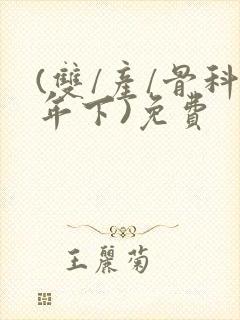 (雙/產/骨科
年下)免費
王麗菊